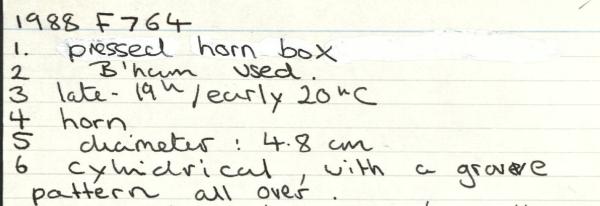 1988 F764
1. pressed horn box
2 B'ham used.
3 late - 19th / early 20thC
4 horn
5 diameter : 4.8 cm
6 cylindrical, with a groove
pattern all over.